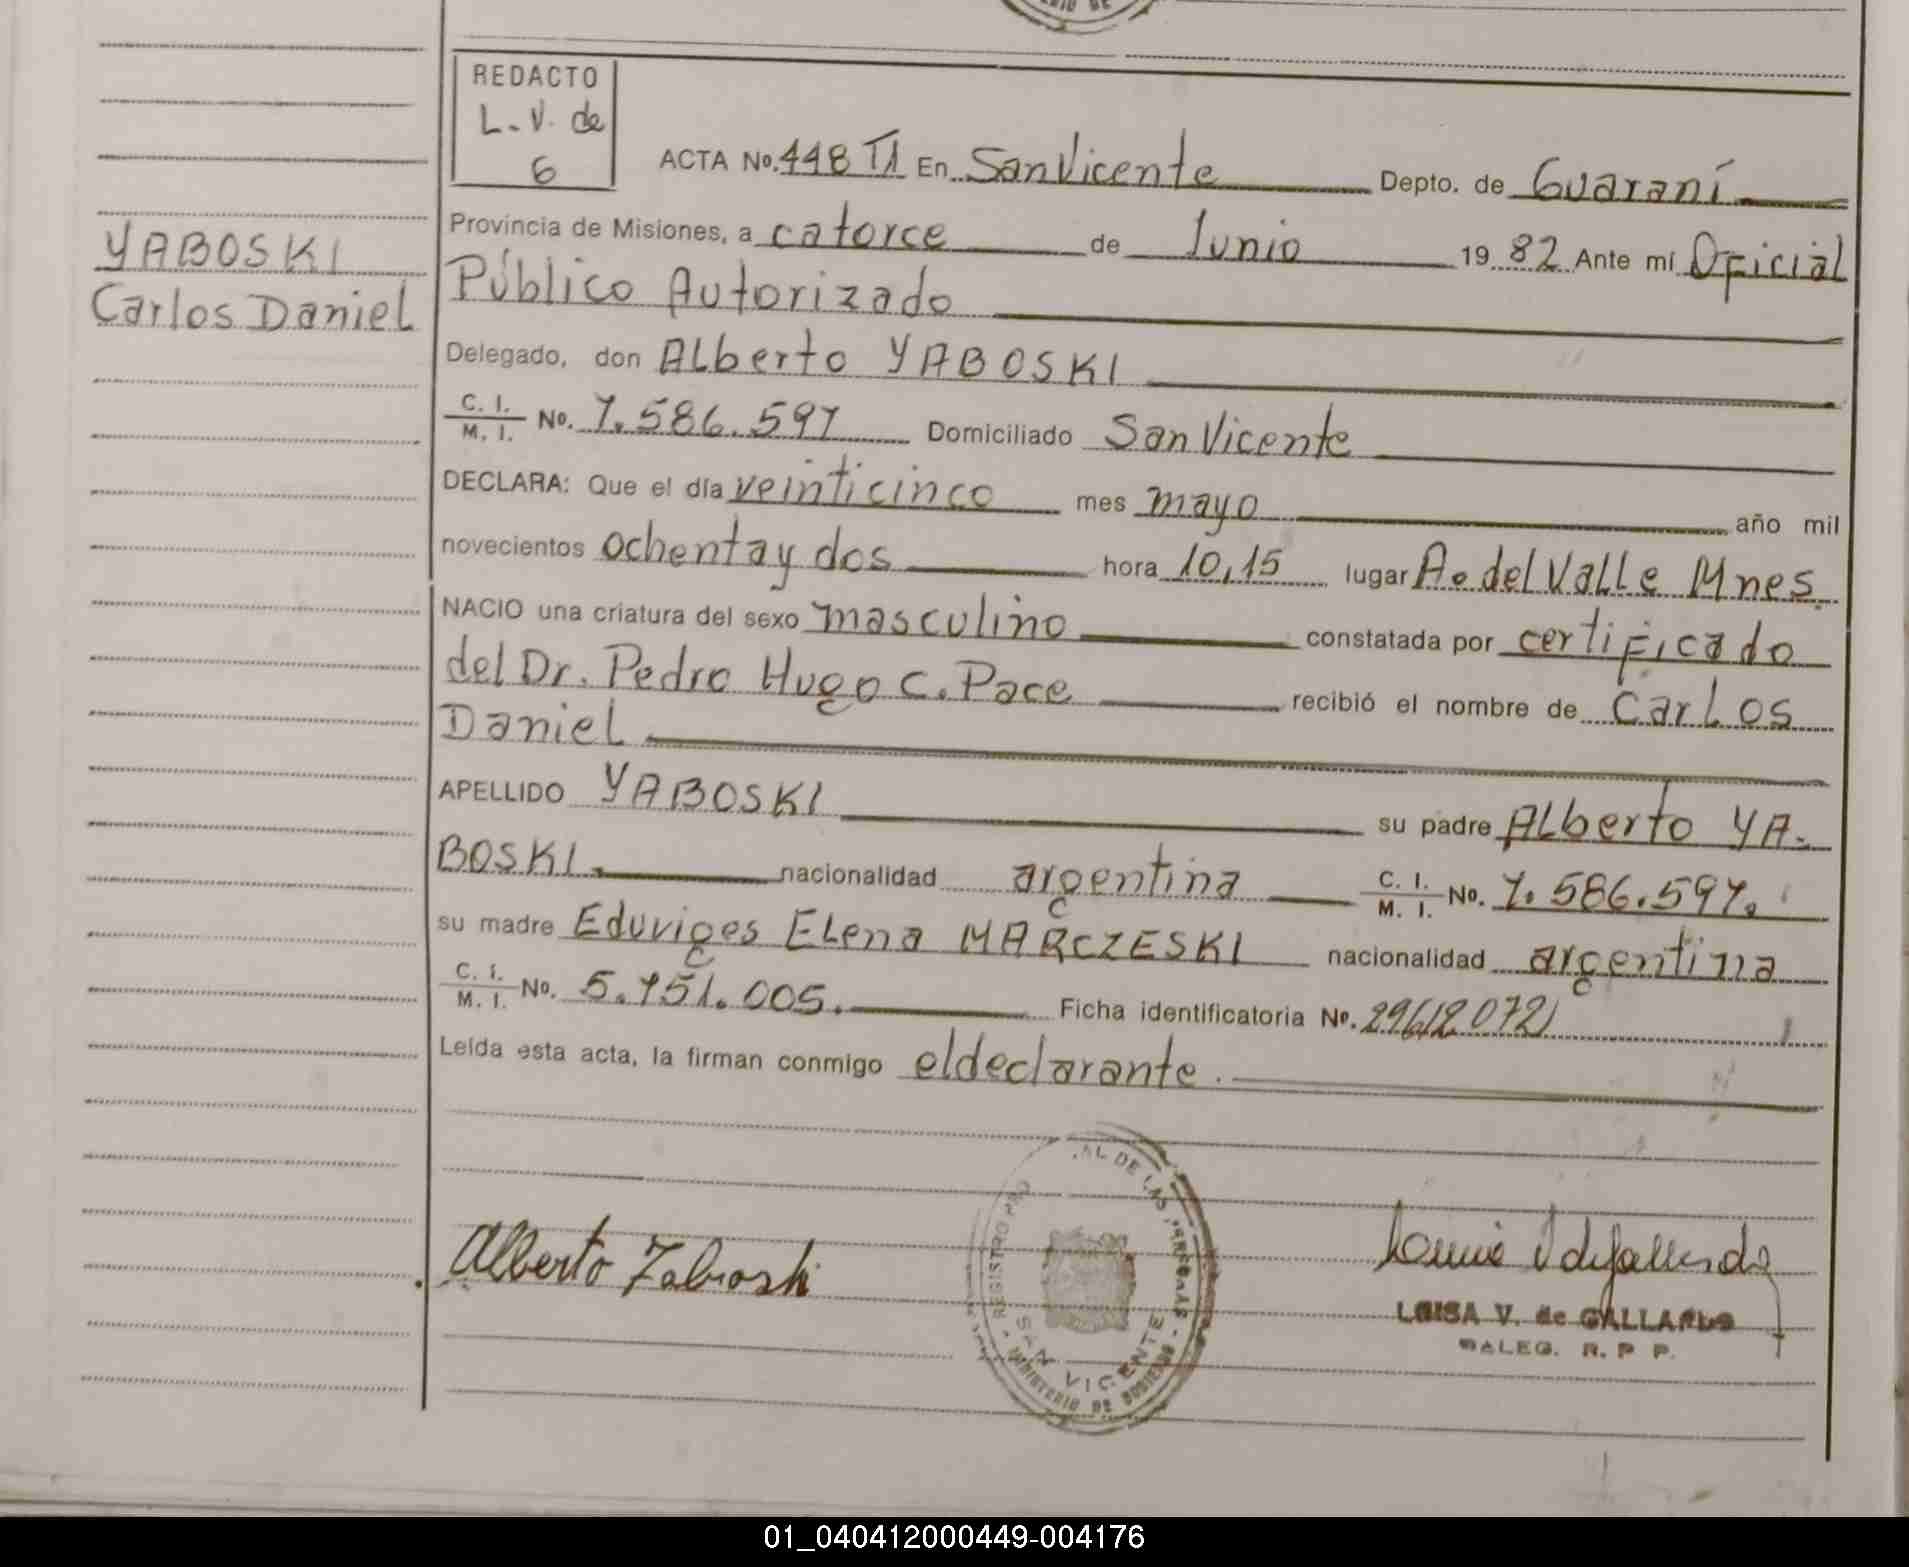 RIO DE
REDACTO
L. V. de
G
ACTA No. 448 T1 En San Vicente Depto. de Guaraní
Provincia de Misiones, a catorce de Junio 1982 Ante mí Oficial
YABOSKI
Público Autorizado
Carlos Daniel
Delegado, don Alberto YABOSKI
C. I. / M. I. No. 7.586.597 Domiciliado San Vicente
DECLARA: Que el día veinticinco mes mayo año mil
novecientos ochenta y dos hora 10,15 lugar A. del Valle Mnes.
NACIO una criatura del sexo masculino constatada por certificado
del Dr. Pedro Hugo C. Pace recibió el nombre de Carlos
Daniel
APELLIDO YABOSKI su padre Alberto YA-
BOSKI. nacionalidad argentina C. I. / M. I. No. 7.586.597.
su madre Eduviges Elena MARCZESKI nacionalidad argentina
C. I. / M. I. No. 5.751.005. Ficha identificatoria No.
Leída esta acta, la firman conmigo el declarante.
REGISTRO PRO AL DE LAS PERSONAS
SAN VICENTE
MINISTERIO DE GOBIERNO
Alberto Yaboski
LUISA V. de GALLARDO
DALEG. R. P. P.
01_040412000449-004176